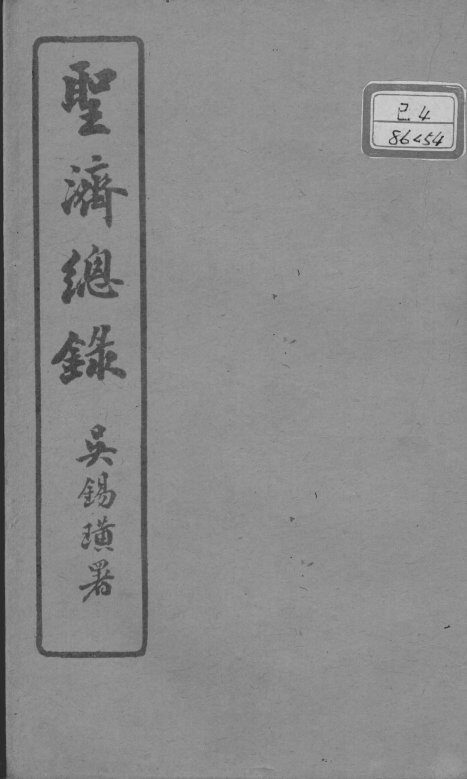 聖濟總錄 吳錫璜署
己4
86454